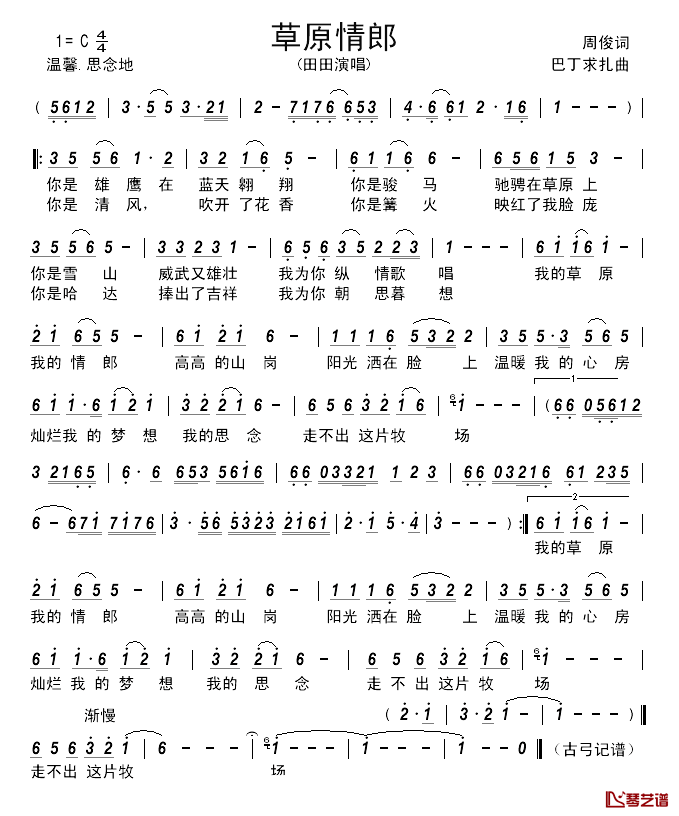 草原情郎
1= C 4/4
周俊词
温馨.思念地
(田田演唱)
巴丁求扎曲
( 5612 | 3·5 53·21 | 2 - 7176 653 | 4·6 61 2·16 | 1 - - - ) |
‖: 35 56 1·2 | 32 16 5 - | 61 16 6 - | 6561 15 3 - |
你是 雄 鹰 在 蓝天 翱 翔 你是骏 马 驰骋在草原 上
你是 清 风， 吹开 了花 香 你是篝 火 映红了我脸 庞
35 56 5 - | 33 23 1 - | 65 6 35 223 | 1 - - - | 61 16 1 - |
你是雪 山 威武又雄壮 我为你 纵 情歌 唱 我的草 原
你是哈 达 捧出了吉祥 我为你 朝 思暮 想
21 65 5 - | 61 21 6 - | 111 6 5322 | 2235 5·3 56 5 |
我的 情 郎 高高 的山 岗 阳光 洒在 脸 上 温暖 我 的 心 房
61 1·6 12 1 | 32 21 6 - | 656 32 16 | 61 - - - | (66 05612
灿烂我 的 梦 想 我的思 念 走不出 这片牧 场
1
3 2165 | 6·6 653 5616 | 66 03321 1 2 3 | 66 03216 61 235 |
6 - 671 7176 | 3·56 5323 2161 | 2·1 5·4 | 3 - - - ) :‖ 61 16 1 - |
2
我的草 原
21 65 5 - | 61 21 6 - | 111 6 5322 | 2235 5·3 56 5 |
我的 情 郎 高高 的山 岗 阳光 洒在 脸 上 温暖 我 的 心 房
61 1·6 12 1 | 32 21 6 - | 656 32 16 | 61 - - - |
灿烂 我 的 梦 想 我的 思 念 走 不 出 这片 牧 场
渐慢
( 2·1 | 3·2 1 - - | 1 - - - ) ‖
656 32 1 | 6 - - - | 61 - - - | 1 - - 0 ‖ (古弓记谱)
走不出 这片牧 场
琴艺谱